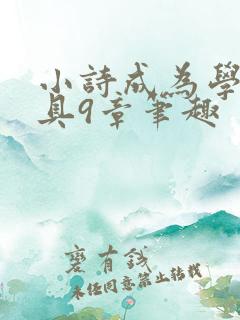 小詩成為學
具9章筆趣
裹有錢
未经同意禁止转载